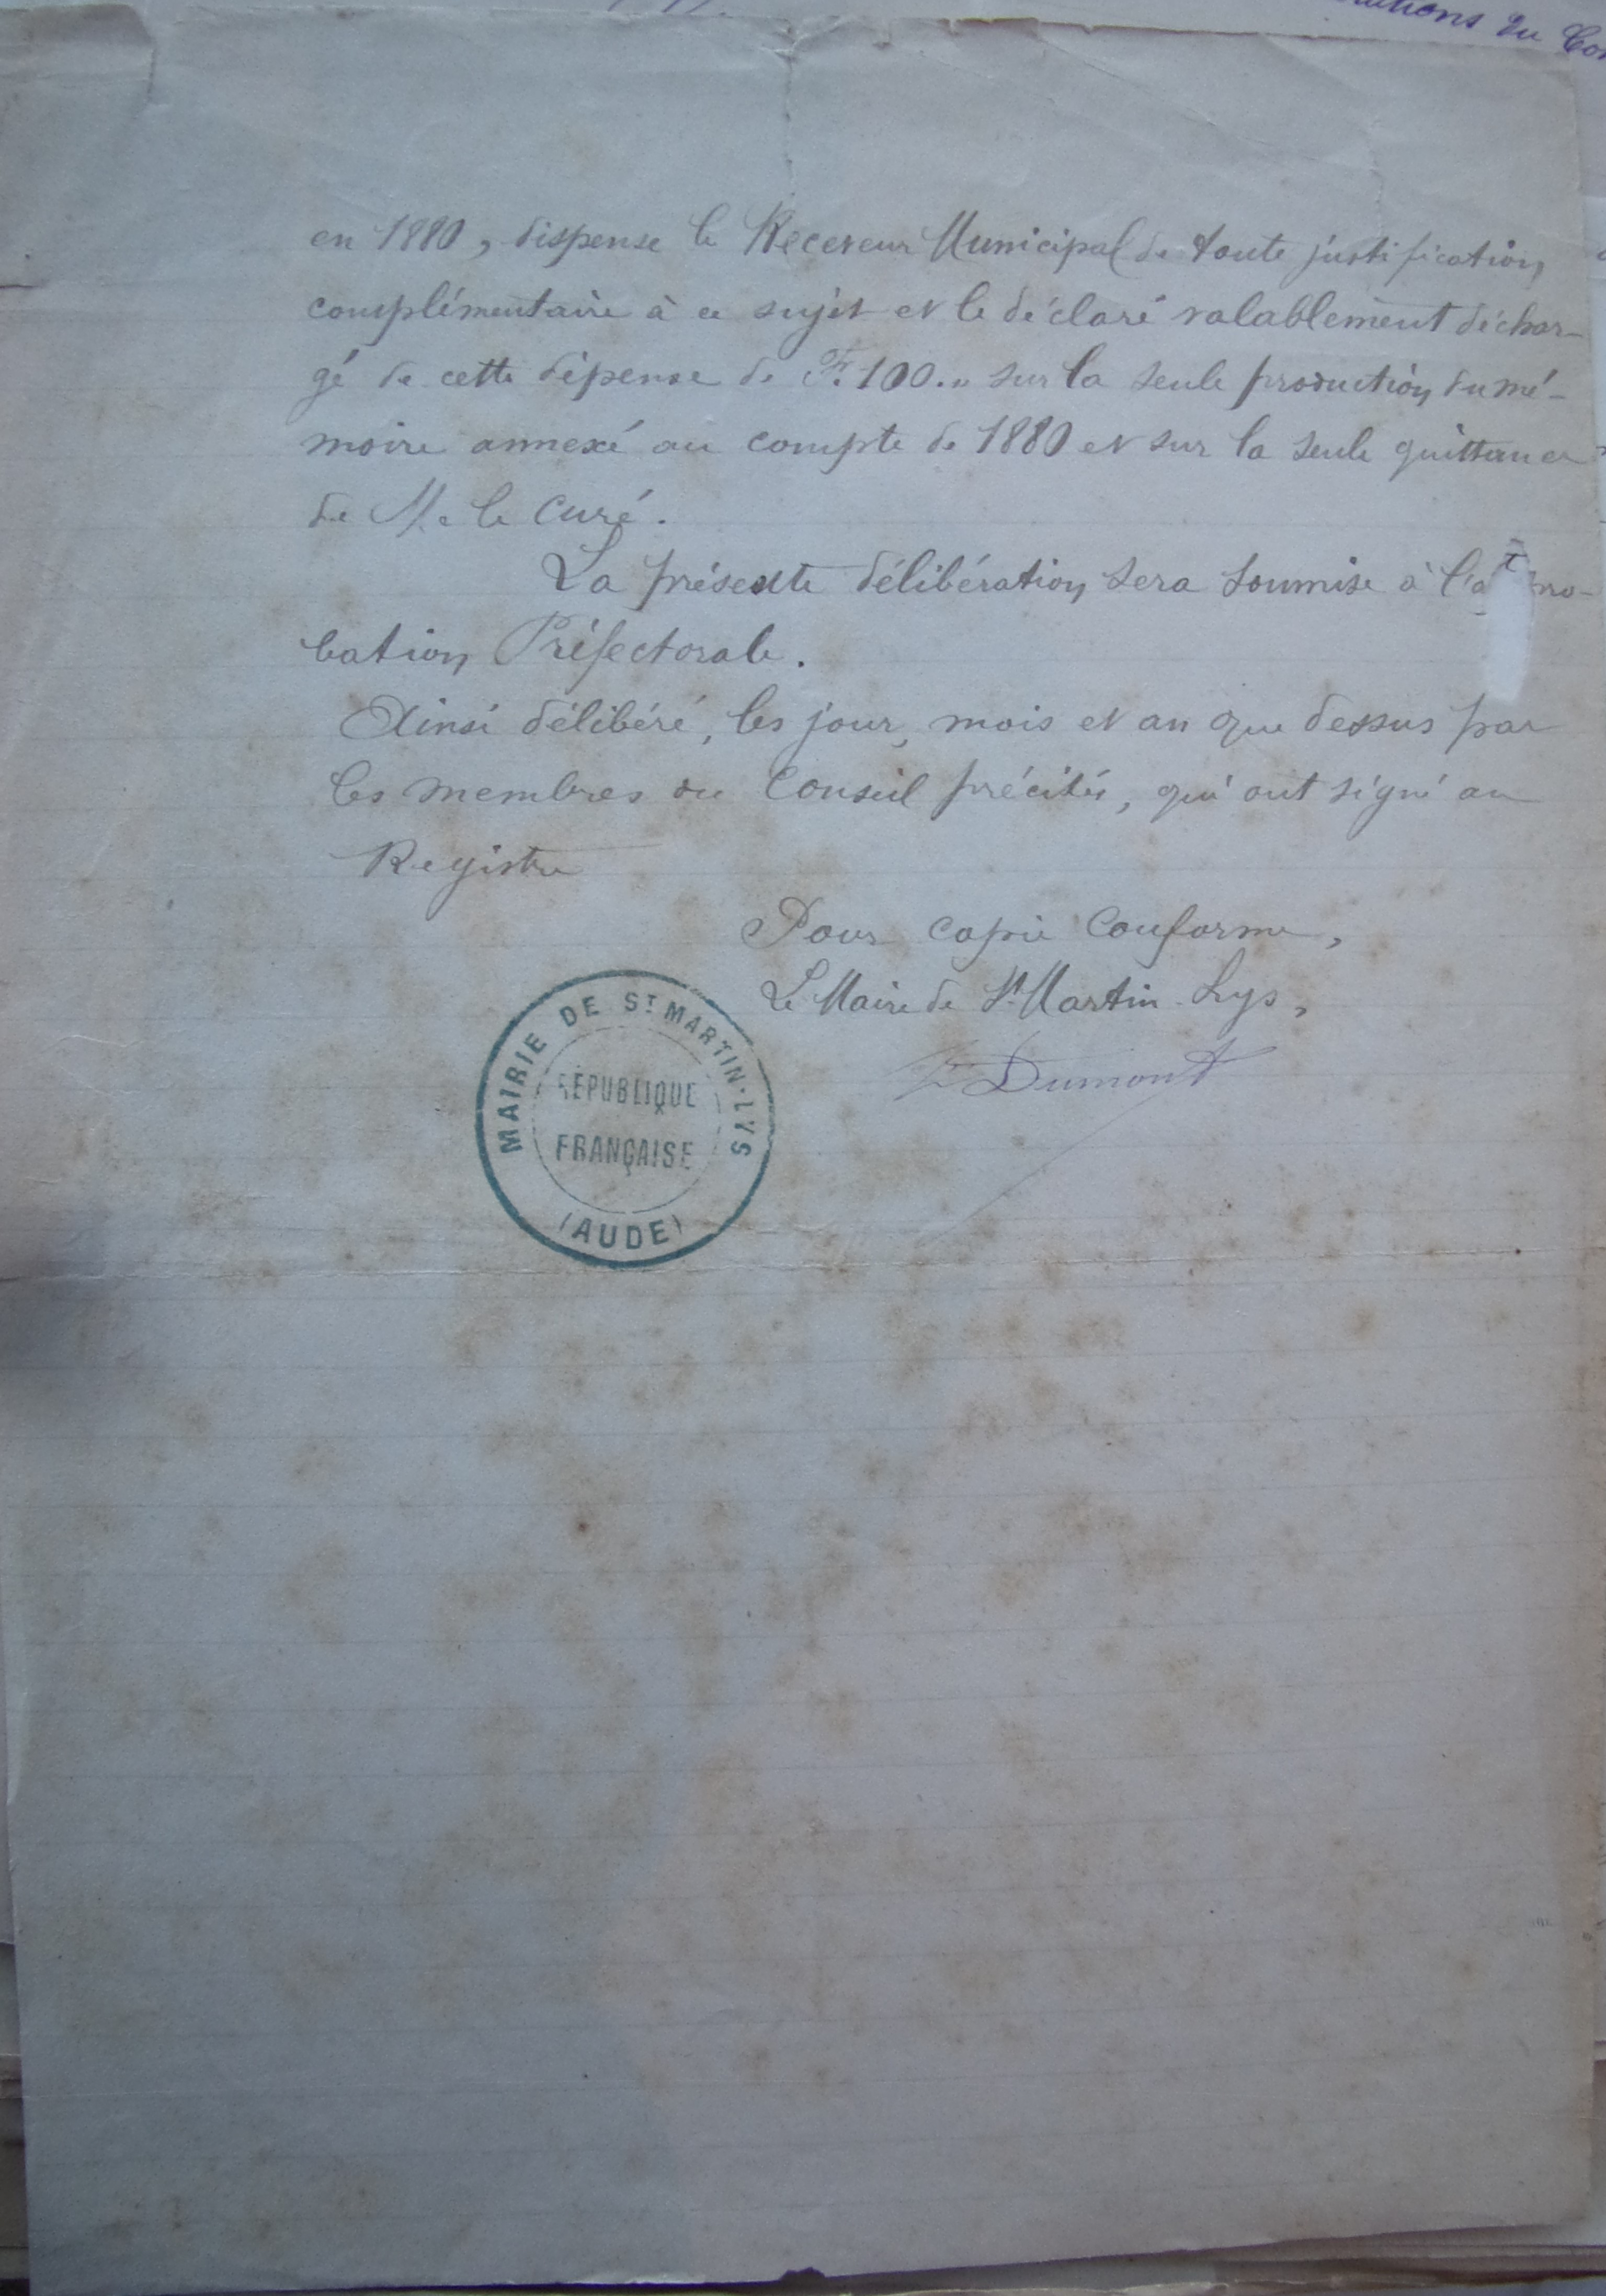 ations du Con
en 1880, dispense le Receveur Municipal de toute justification
complémentaire à ce sujet et le déclare valablement déchar-
gé de cette dépense de F. 100.„ sur la seule production du mé-
moire annexé au compte de 1880 et sur la seule quittance
de M. le Curé.
La présente délibération sera soumise à l'appro-
bation Préfectorale.
Ainsi délibéré, les jour, mois et an que dessus par
les membres du Conseil précités, qui ont signé au
Registre
Pour copie conforme,
Le Maire de St Martin-Lys,
Dumont
MAIRIE DE ST MARTIN-LYS
RÉPUBLIQUE
FRANÇAISE
(AUDE)